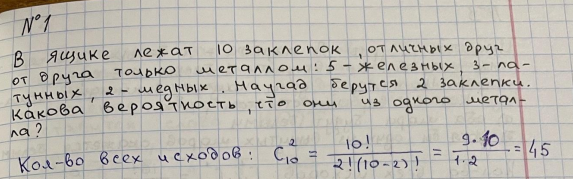 №1
В ящике лежат 10 заклепок, отличных друг
от друга только металлом: 5 - железных, 3 - ла-
тунных, 2 - медных. Наугад берутся 2 заклепки.
Какова вероятность, что они из одного метал-
ла?
Кол-во всех исходов: C₁₀² = 10! / 2!(10-2)! = 9·10 / 1·2 = 45